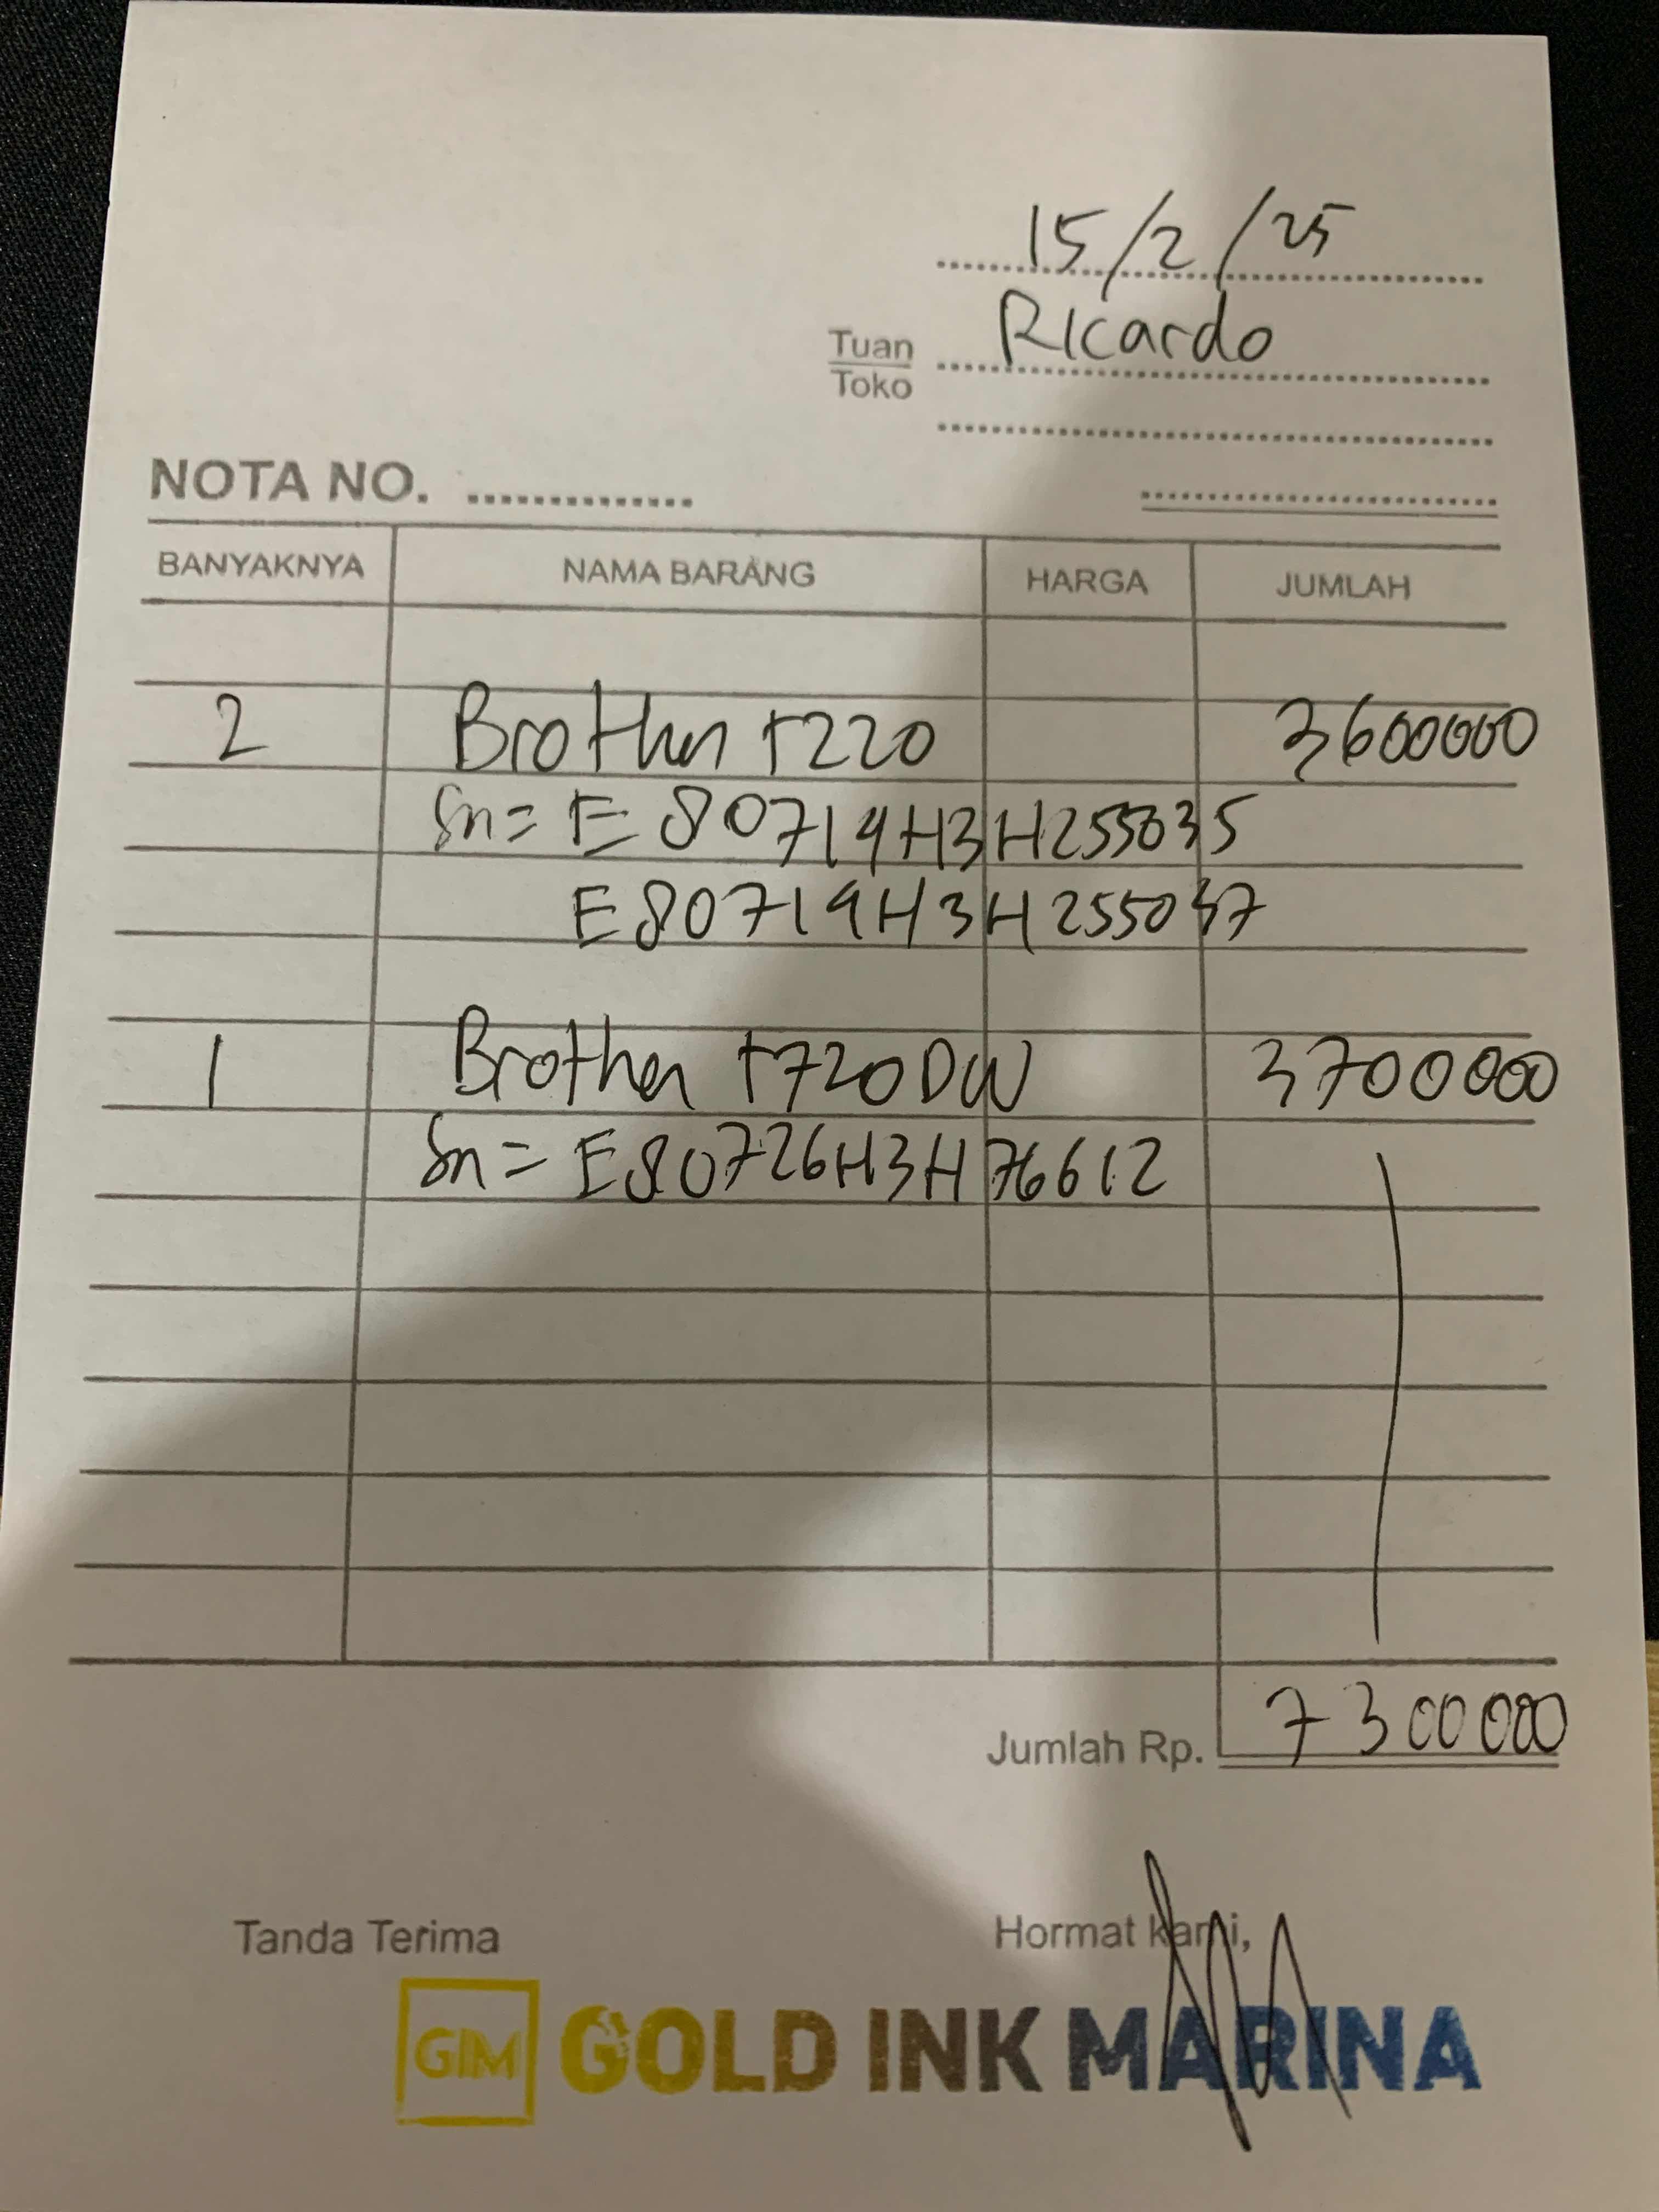 15/2/25
Tuan Ricardo
Toko
NOTA NO.
BANYAKNYA NAMA BARANG HARGA JUMLAH
2 Brother t220 3600000
Sn = E80719H3H255035
E80719H3H255037
1 Brother t720DW 3700000
Sn = E80726H3H76612
Jumlah Rp. 7300000
Tanda Terima Hormat kami,
GIM GOLD INK MARINA